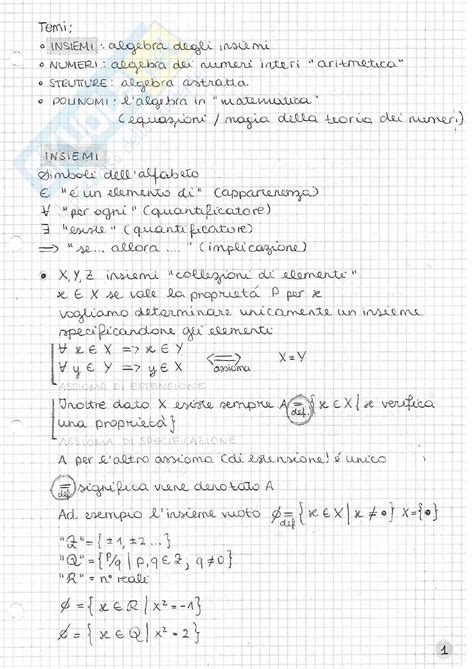 Temi:
• INSIEMI: algebra degli insiemi
• NUMERI: algebra dei numeri interi "aritmetica"
• STRUTTURE: algebra astratta
• POLINOMI: l'algebra in "matematica"
(equazioni / magia della teoria dei numeri)
INSIEMI
Simboli dell'alfabeto
∈ "é un elemento di" (appartenenza)
∀ "per ogni" (quantificatore)
∃ "esiste" (quantificatore)
⟹ "se... allora ...." (implicazione)
• X,Y,Z insiemi "collezioni di elementi"
x ∈ X se vale la proprietá P per x
vogliamo determinare unicamente un insieme
specificandone gli elementi
∀ x ∈ X => x ∈ Y
∀ y ∈ Y => y ∈ X <=> assioma X=Y
ASSIOMA DI ESTENSIONE
Inoltre dato X esiste sempre A = def. {x ∈ X | x verifica
una proprietá}
ASSIOMA DI SPECIFICAZIONE
A per l'altro assioma (di estensione) é unico
= def significa viene denotato A
Ad esempio l'insieme vuoto ∅ = def {x ∈ X | x ≠ •} X={•}
"Z"={±1, ±2 ...}
"Q"={p/q | p,q ∈ Z, q≠0}
"R" = n° reali
∅ = {x ∈ R | x² = -1}
∅ = {x ∈ Q | x² = 2}
1